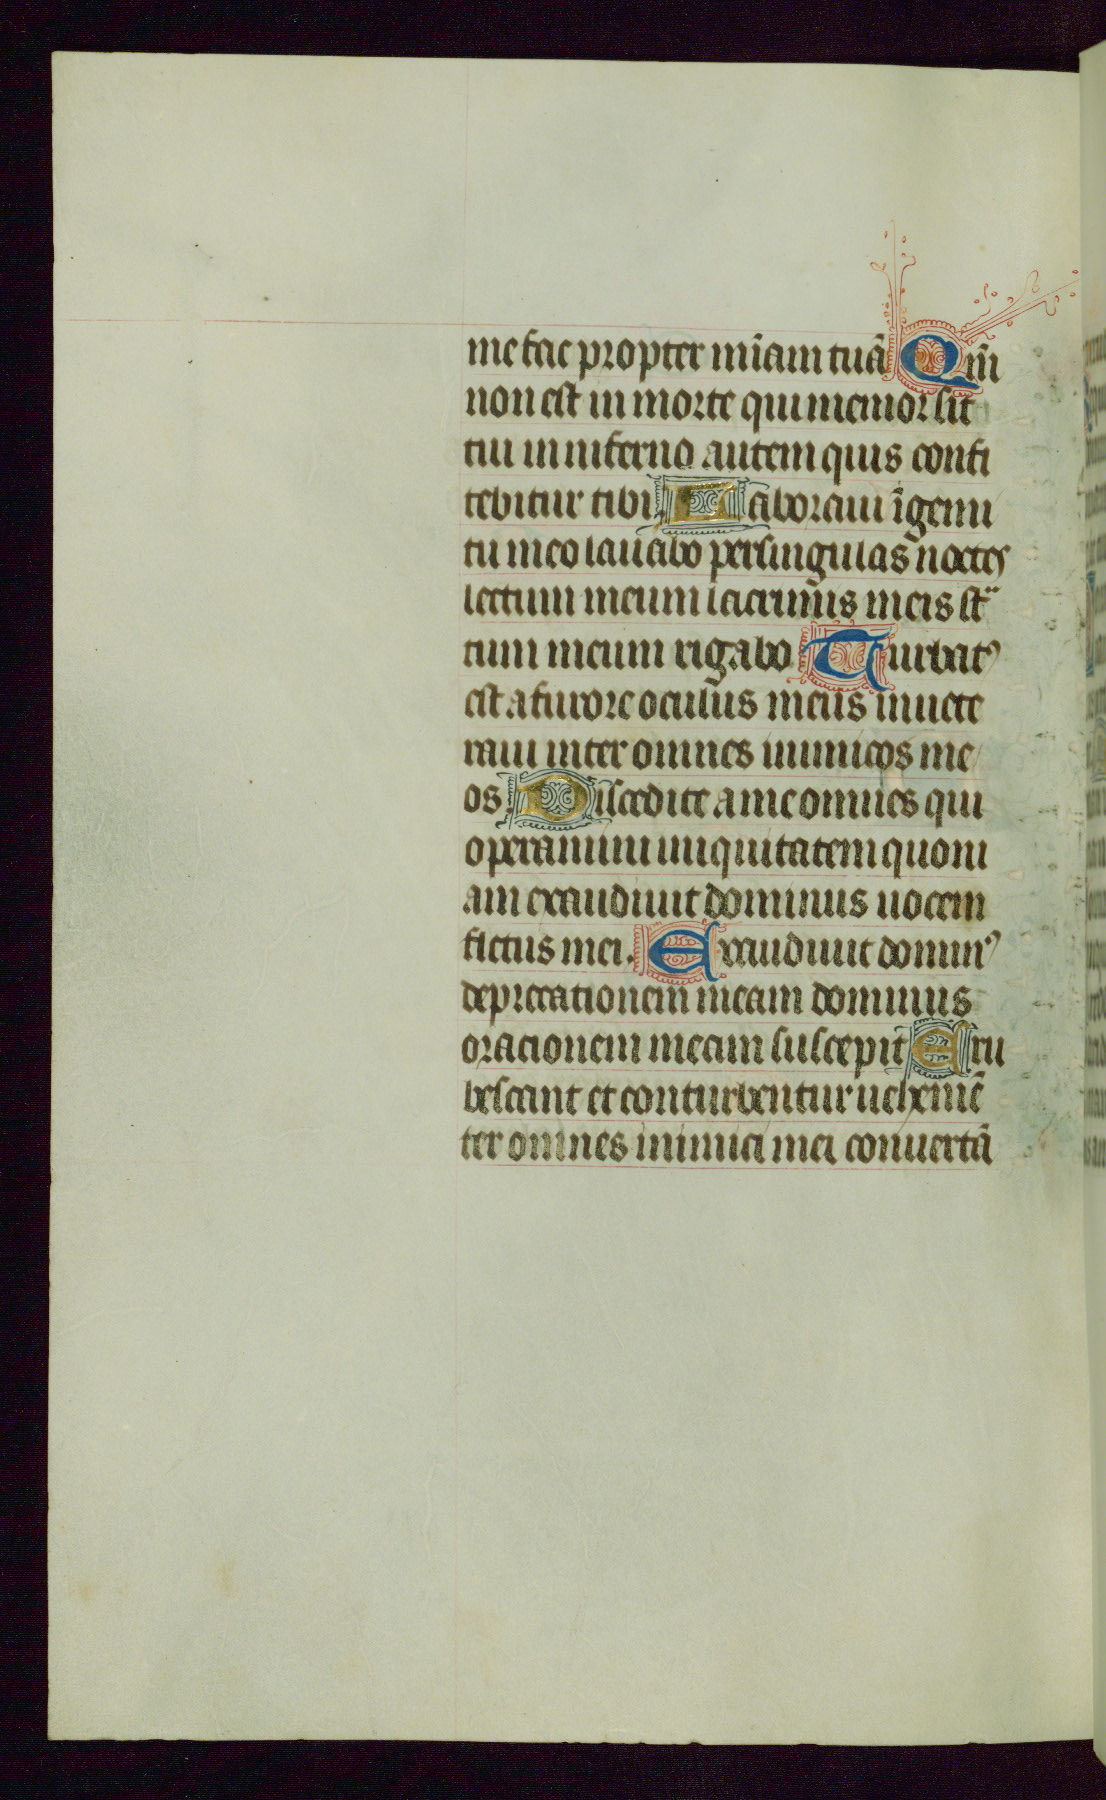 me fac propter mīam tuā Qm̄
non est in morte qui memor sit
tui in inferno autem quis confi
tebitur tibi. Laboraui īgemi
tu meo lauabo persingulas noctes
lectum meum lacrimis meis st̄
tum meum rigabo Turbatꝰ
est a furore oculus meus inuete
raui inter omnes inimicos me
os. Discedite a me omnes qui
operamini iniquitatem quoni
am exaudiuit dominus uocem
fletus mei. Exaudiuit dominꝰ
deprecationem meam dominus
oracionem meam suscepit Eru
bescant et conturbentur uehemē
ter omnes inimici mei conuertā